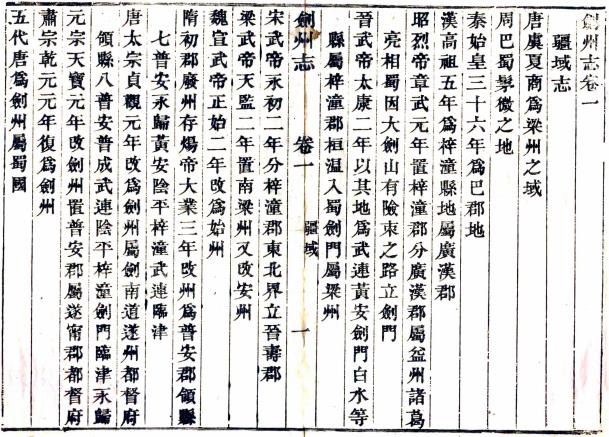 劍州志卷一
疆域志
唐虞夏商爲梁州之域
周巴蜀髳微之地
秦始皇三十六年爲巴郡地
漢高祖五年爲梓潼縣地屬廣漢郡
昭烈帝章武元年置梓潼郡分廣漢郡屬益州諸葛
亮相蜀因大劍山有險束之路立劍門
晉武帝太康二年以其地爲武連黃安劍門白水等
縣屬梓潼郡桓温入蜀劍門屬梁州
劍州志 卷一 疆域 一
宋武帝永初二年分梓潼郡東北界立晉壽郡
梁武帝天監二年置南梁州又改安州
魏宣武帝正始二年改爲始州
隋初郡廢州存煬帝大業三年改州爲普安郡領縣
七普安永歸黃安陰平梓潼武連臨津
唐太宗貞觀元年改爲劍州屬劍南道遂州都督府
領縣八普安普成武連陰平梓潼劍門臨津永歸
元宗天寶元年改劍州置普安郡屬遂甯郡都督府
肅宗乾元元年復爲劍州
五代唐爲劍州屬蜀國